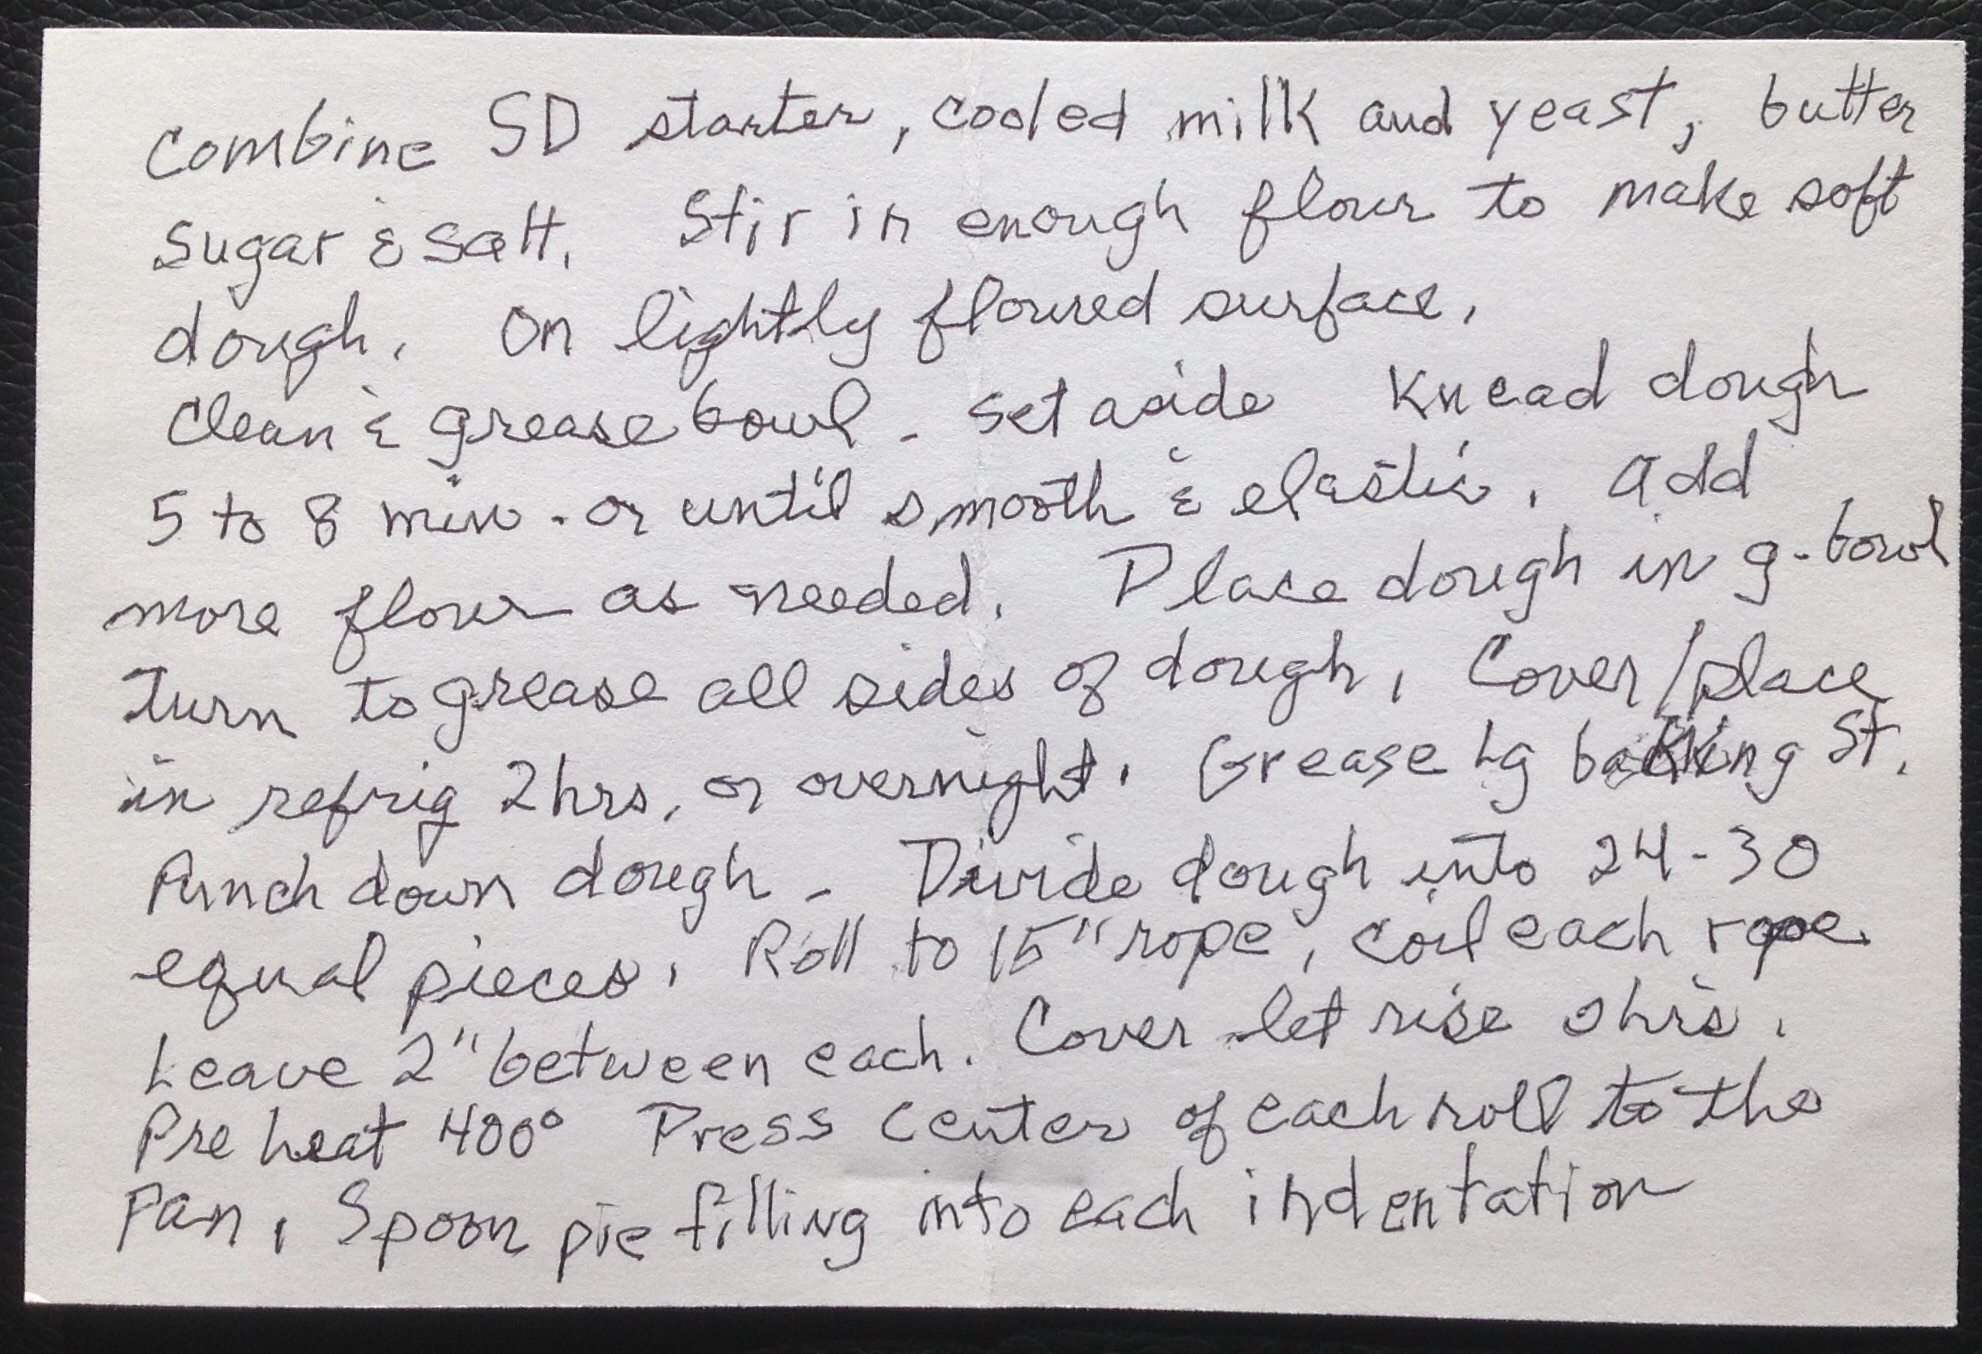 Combine SD starter, cooled milk and yeast, butter
Sugar & Salt. Stir in enough flour to make soft
dough. On lightly floured surface.
Clean & grease bowl - set aside Knead dough
5 to 8 min. or until smooth & elastic. Add
more flour as needed. Place dough in g-bowl
Turn to grease all sides of dough. Cover/place
in refrig 2 hrs. or overnight. Grease Lg baking St.
Punch down dough - Divide dough into 24-30
equal pieces. Roll to 15" rope, coil each rope
Leave 2" between each. Cover let rise 2 hrs.
Preheat 400° Press center of each roll to the
Pan. Spoon pie filling into each indentation